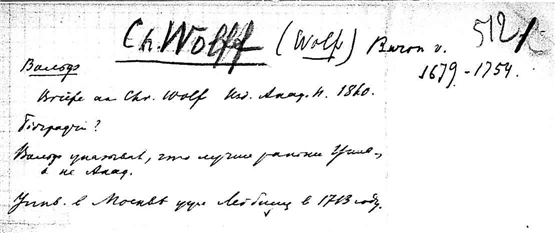 Ch. Wolff (Wolf) Baron v. 512
1679-1754.
Вольф
Briefe an Chr. Wolf Изд. Акад. Н. 1860.
Біографіи?
Вольф указывал, что лучше Унив.,
а не Акад.
Унив. в Москвѣ Лейбниц в 1713 году.